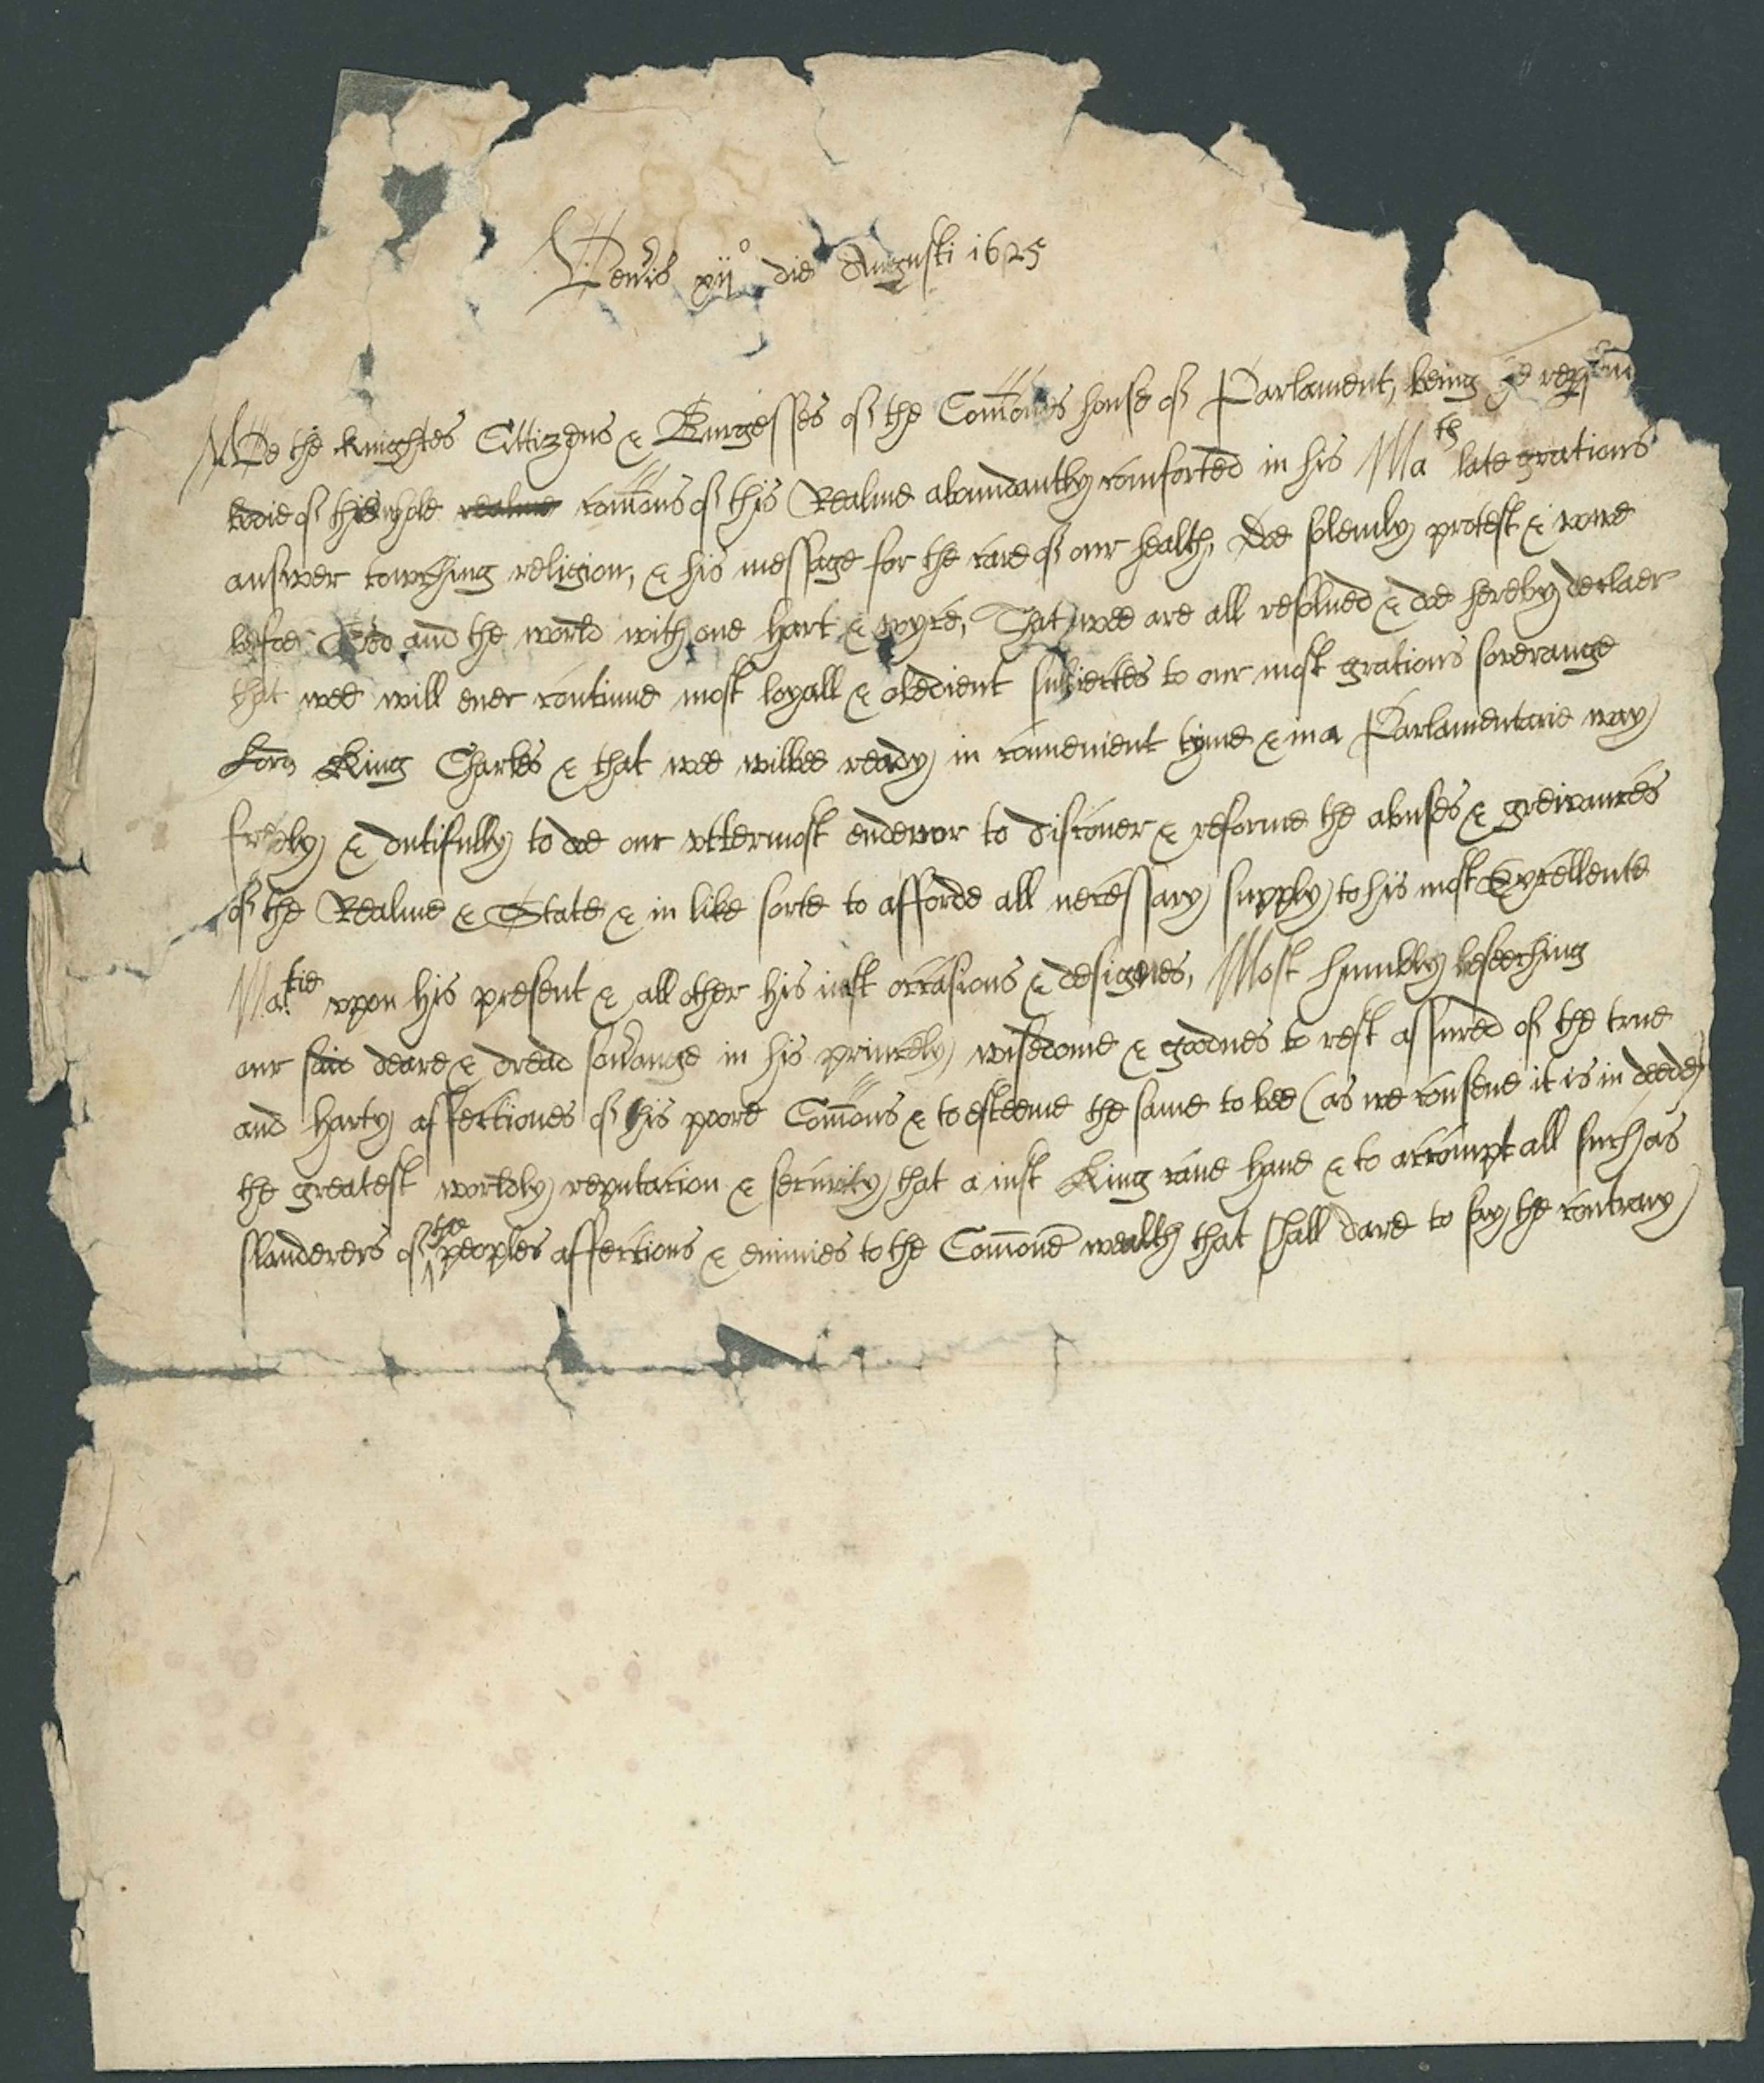 Ven̄is xij° die Augusti 1625
Wee the knightes Cittizens & Burgesses of the Com̄ons house of Parlament, being ye
bodie of this whole realme com̄ons of this Realme abundantly comforted in his Ma th late gratious
answer towching religion, & his message for the care of our health, Doe solemly protest & vowe
before God and the world with one hart & voyce, That wee are all resolued & doe hereby declaer
that wee will euer continue most loyall & obedient subiectes to our most gratious soveraange
Lord King Charles & that wee wilbee ready in convenient tyme & in a Parlamentarie way
freely & dutifully to doe our vttermost endevor to discouer & reforme the abuses & greivances
of the Realme & State & in like sorte to afforde all necessary supply to his most Excellente
Ma.tie vpon his present & all other his iust occasions & designes, Most humbly beseeching
our said deare & dread sov̄ange in his princely wisedome & goodnes to rest assured of the true
and harty affectiones of his poore Com̄ons & to esteeme the same to bee (as we conseue it is in deede)
the greatest worldly reputacion & security that a iust King cane haue & to accompt all such as
slanderers of the peoples affections & enimies to the Com̄one wealth that shall dare to say the contrary